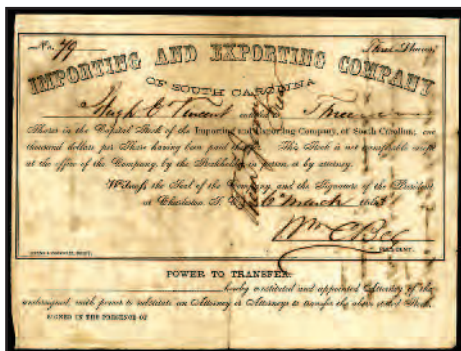 No. 79 Three Shares
IMPORTING AND EXPORTING COMPANY
OF SOUTH CAROLINA
Hugh E Vincent entitled to Three
Shares in the Capital Stock of the Importing and Exporting Company, of South Carolina; one
thousand dollars per Share having been paid thereon. This Stock is not transferable except
at the office of the Company, by the Stockholder in person or by attorney.
Witness, the Seal of the Company, and the Signature of the President
at Charleston, S. C. 6 March
Wm C Bee
PRESIDENT.
POWER TO TRANSFER.
hereby constituted and appointed Attorney of the
undersigned, with power to substitute an Attorney or Attorneys to transfer the above stated Stock.
SIGNED IN THE PRESENCE OF